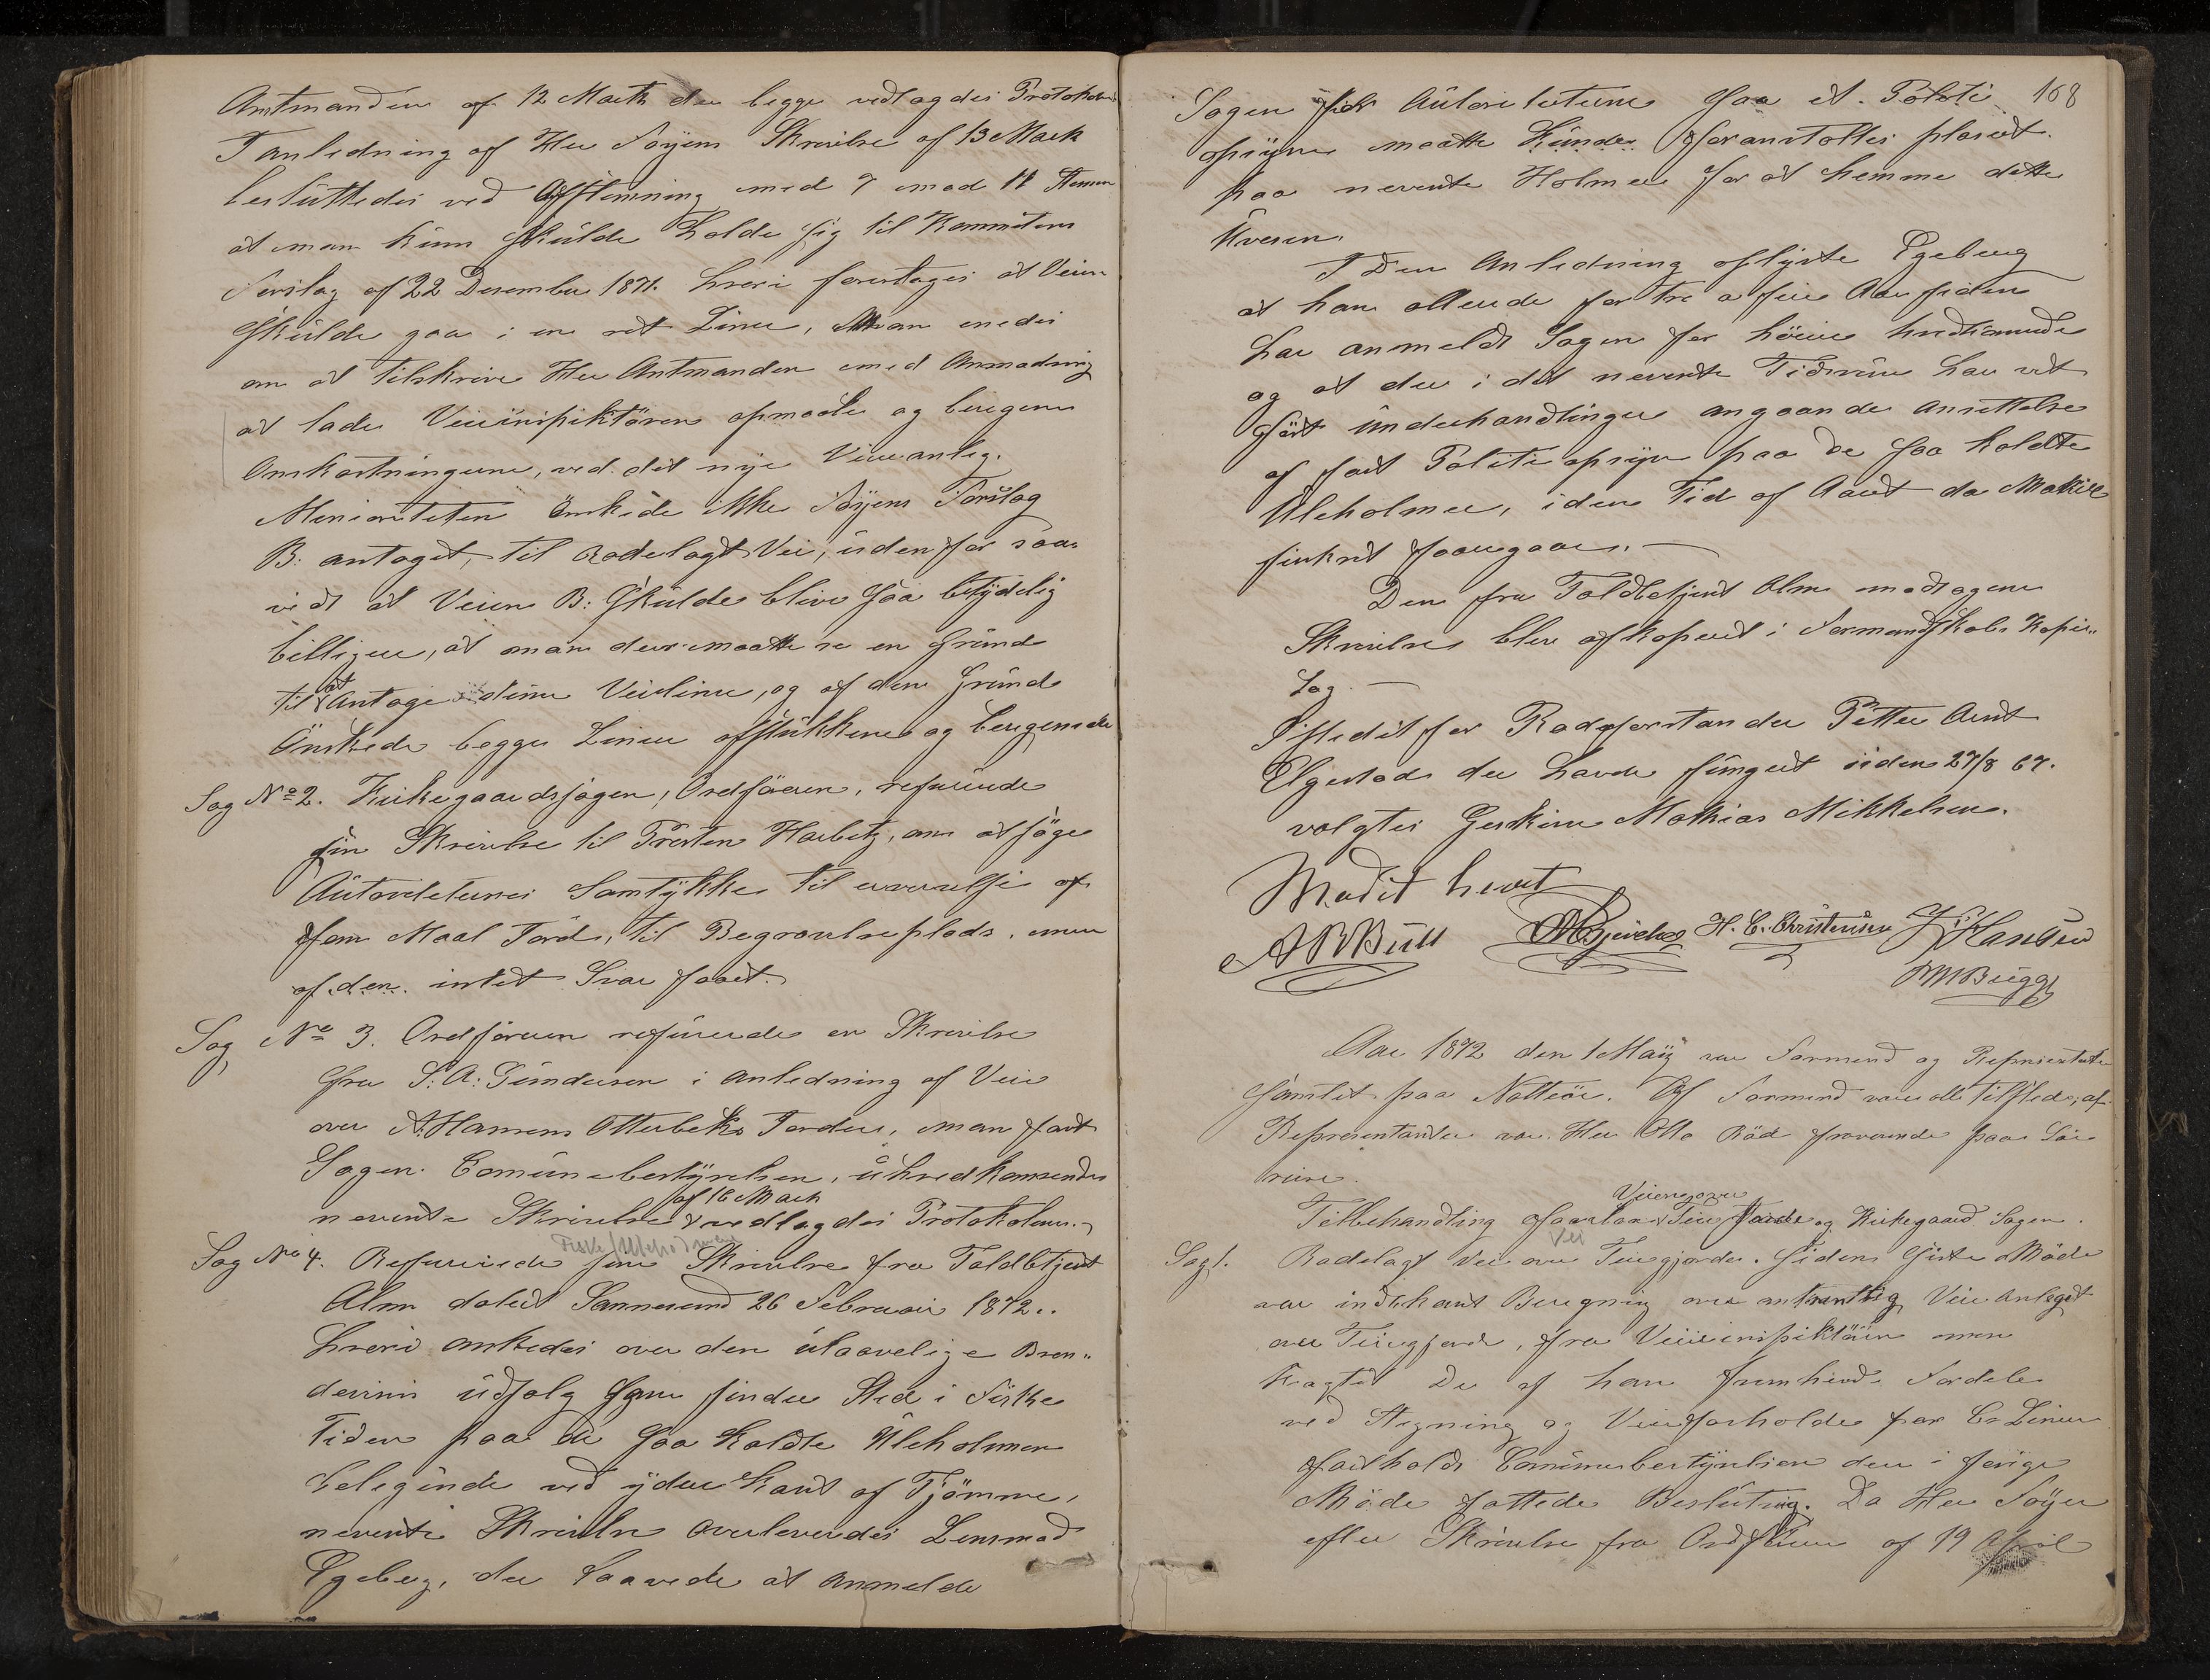 Amtmanden af 12 Marts der begge vedlagdes Protokolen
I anledning af Herr Föyens Skrivelse af 13 Marts
besluttedes ved Afstemning med 7 imod 11 Stemmer
at man kun skulde holde sig til Kommitens
Forslag af 22 Desember 1871. hvori foreslages at Veien
skulde gaa i en ret Linie, Man enedes
om at tilskrive Herr Amtmanden med Anmodning
at lade Veiinspiktören opmaale og beregne
Omkostningerne, ved det nye Veieanleg.
Menioriteten Önskede ikke Föyens Forslag
B: antaget, til Rodelagt Vei, uden for saa
vidt at Veien B: skulde blive saa betydelig
billigere, at man deri maatte se en Grund
til at Antage denne Veilinie, og af den Grund
Önskede begge Linier afstukkene og beregnede
Sag No 2. Kirkegaardssagen, Ordföreren, refererede
sin Skrivelse til Presten Harbitz, om at söge
Autoriteternes Samtykke til erverelse af
fem Maal Jord, til Begravelseplads, men
af den intet Svar faaet.
Sag No 3. Ordföreren refererede en Skrivelse
fra S: A: Gundersen i anledning af Veie
over A. Hansens Otterbeks Jorder, man fant
Sagen Comunebestyrelsen, uhvedkommende
af 16 Marts
nevnte Skrivelse vedlagdes Protokolen.
Fiske
Sag No 4. Refererede sin Skrivelse fra Toldbetjent
Alm dateret Sannesund 26 Februar 1872.
hvori ankedes over den ulaavelige Bren-
devins udsalg som finder Sted i Fiske
Tiden paa de saa kaldte Uleholmer
beliggende ved ydere Kant af Tjömme,
nevnte Skrivelse overleveredes Lensmand
Egeberg, der laavede at anmelde
168
Sagen for Autoriteterne saa et Politi
opsyn maatte kunde foranstaltes plaseret
paa nevnte Holmer for at hemme dette
Uvesen.
I den Anledning oplyste Egeberg
at han allerede for tre a fire Aar siden
har anmeldt Sagen for höiere Vedkommende
og at der i det nevnte Tidsrum har vert
fört underhandlinger angaande ansettelse
af fast Politi opsyn paa de saa kaldte
Uleholmer, i den Tid af Aaret da Makrel
fiskeriet foaregaar.
Den fra Toldbetjent Alm modtagene
Skrivelse blev afkoperet i Formandskabs Kopie-
bog.
Istedet for Rodeforstander Petter Arnt
Elgestad der havde fungert siden 27/8 67.
valgtes Gerkine Mathias Mikkelsen.
Mödet hevet
A B Bull H. C. Christensen J Hansen
M Bugge
Aar 1872 den 1 Maij var Formend og Representanter
samlet paa Nötteröe. Af Formend vare alle tilstede, af
Representanter var Herr Otto Röd fraverende paa Söe
reise.
Veien over
Tilbehandling foarlaa Tein Jorde og Kirkegaard Sagen.
Vei
Sag 1. Rodelagt Vei over Teiegjorder. Siden siste Möde
var indkomt Beregning over omtrentlig Veieanleget
over Teiegjorde, fra Veiinspiktören men
tragtet De af ham fremhevede Fordele
ved Stigning og Veieforholde paa C Linien
fastholdt Comunebestyrelsen den i forige
Möde fattede Beslutning. Da Herr Föyn
efter Skrivelse fra Ordföreren af 19 April